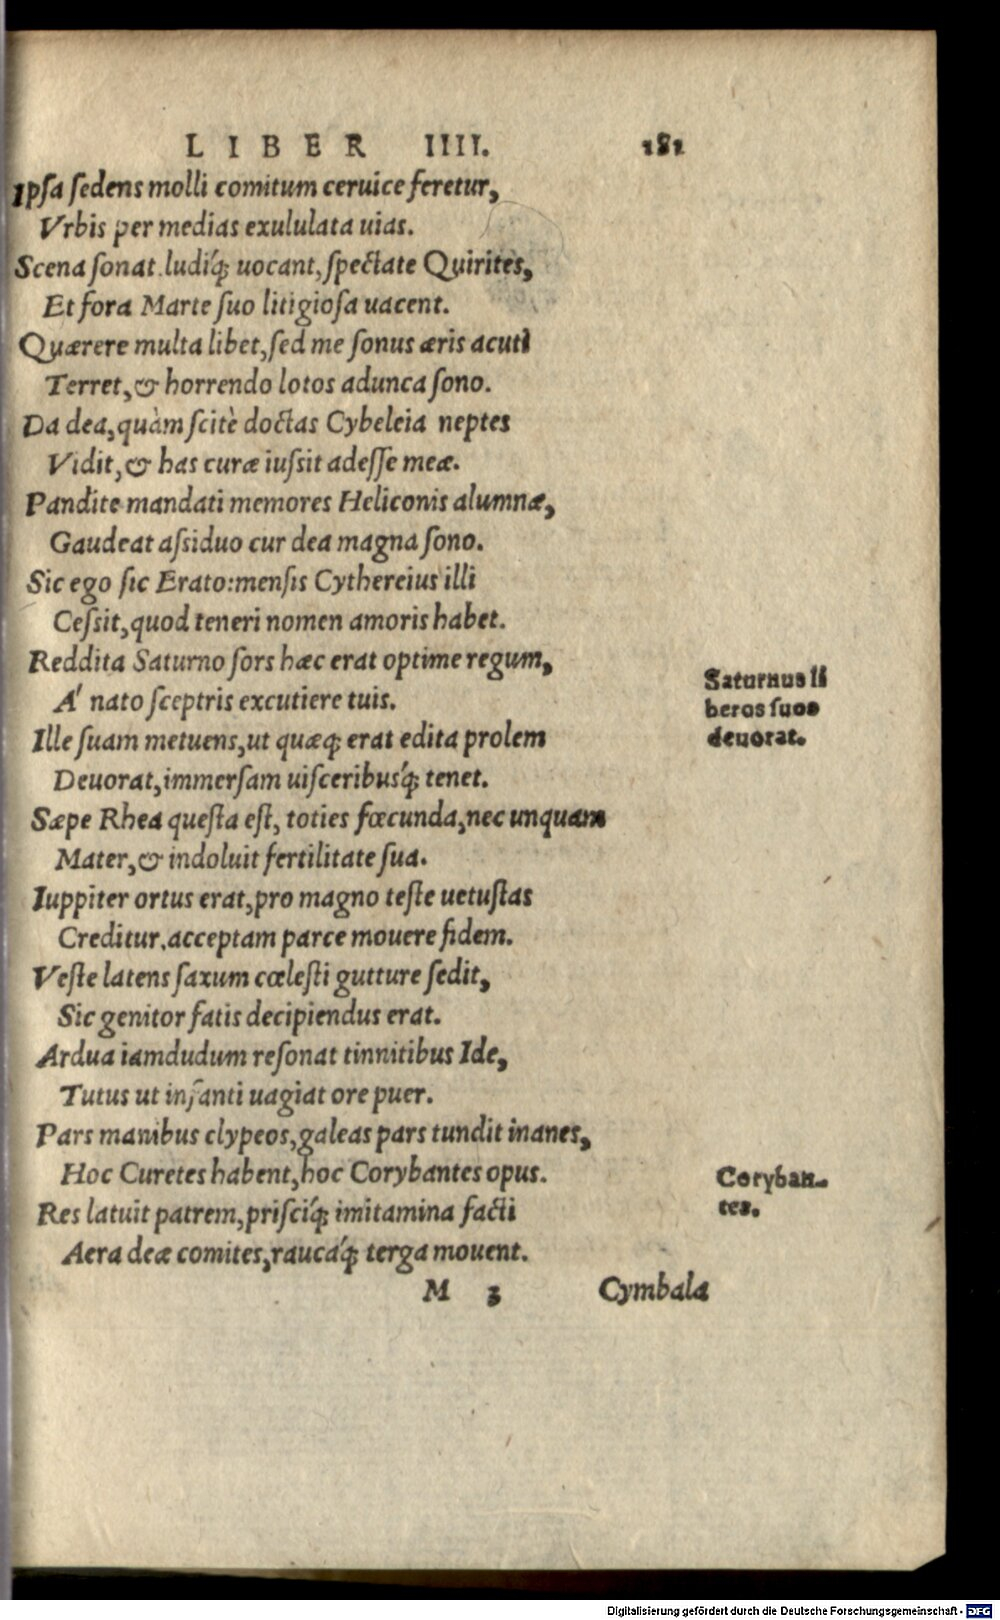 LIBER IIII. 181
Ipsa sedens molli comitum ceruice feretur,
Vrbis per medias exululata uias.
Scena sonat, ludíq; uocant, spectate Quirites,
Et fora Marte suo litigiosa uacent.
Quærere multa libet, sed me sonus æris acuti
Terret, & horrendo lotos adunca sono.
Da dea, quàm scitè doctas Cybeleia neptes
Vidit, & has curæ iussit adesse meæ.
Pandite mandati memores Heliconis alumnæ,
Gaudeat assiduo cur dea magna sono.
Sic ego sic Erato: mensis Cythereius illi
Cessit, quod teneri nomen amoris habet.
Reddita Saturno sors hæc erat optime regum,
A' nato sceptris excutiere tuis.
Ille suam metuens, ut quæq; erat edita prolem
Deuorat, immersam uisceribus'q; tenet.
Sæpe Rhea questa est, toties fœcunda, nec unquam
Mater, & indoluit fertilitate sua.
Iuppiter ortus erat, pro magno teste uetustas
Creditur, acceptam parce mouere fidem.
Veste latens saxum cœlesti gutture sedit,
Sic genitor fatis decipiendus erat.
Ardua iamdudum resonat tinnitibus Ide,
Tutus ut infanti uagiat ore puer.
Pars manibus clypeos, galeas pars tundit inanes,
Hoc Curetes habent, hoc Corybantes opus.
Res latuit patrem, prisciq́; imitamina facti
Aera deæ comites, raucaq́; terga mouent.
M 3 Cymbala
Saturnus li
beros suos
deuorat.
Coryban-
tes.
Digitalisierung gefördert durch die Deutsche Forschungsgemeinschaft - DFG